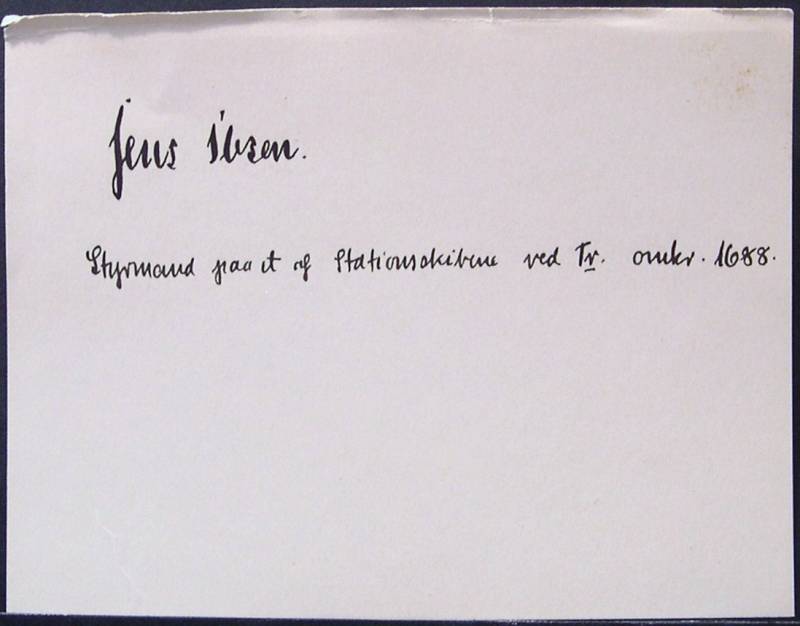 Jens Ibsen.
Styrmand paa et af Stationsskibene ved Tr. omkr. 1688.